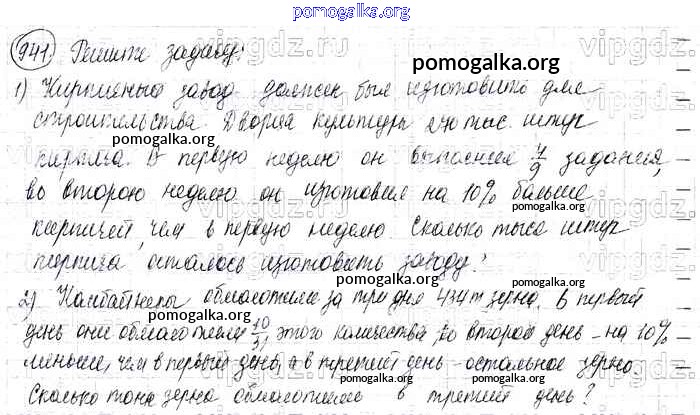 pomogalka.org
941 Решите задачу:
1) Кирпичный завод должен был изготовить для
строительства Дворца культуры 270 тыс. штук
кирпича. В первую неделю он выполнил 4/9 задания,
во вторую неделю он изготовил на 10% больше
кирпичей, чем в первую неделю. Сколько тысяч штук
кирпича осталось изготовить заводу?
2) Комбайнеры обмолотили за три дня 434 т зерна. В первый
день они обмолотили 10/31 этого количества, во второй день - на 10%
меньше, чем в первый день, а в третий день - остальное зерно.
Сколько тонн зерна обмолотили в третий день?